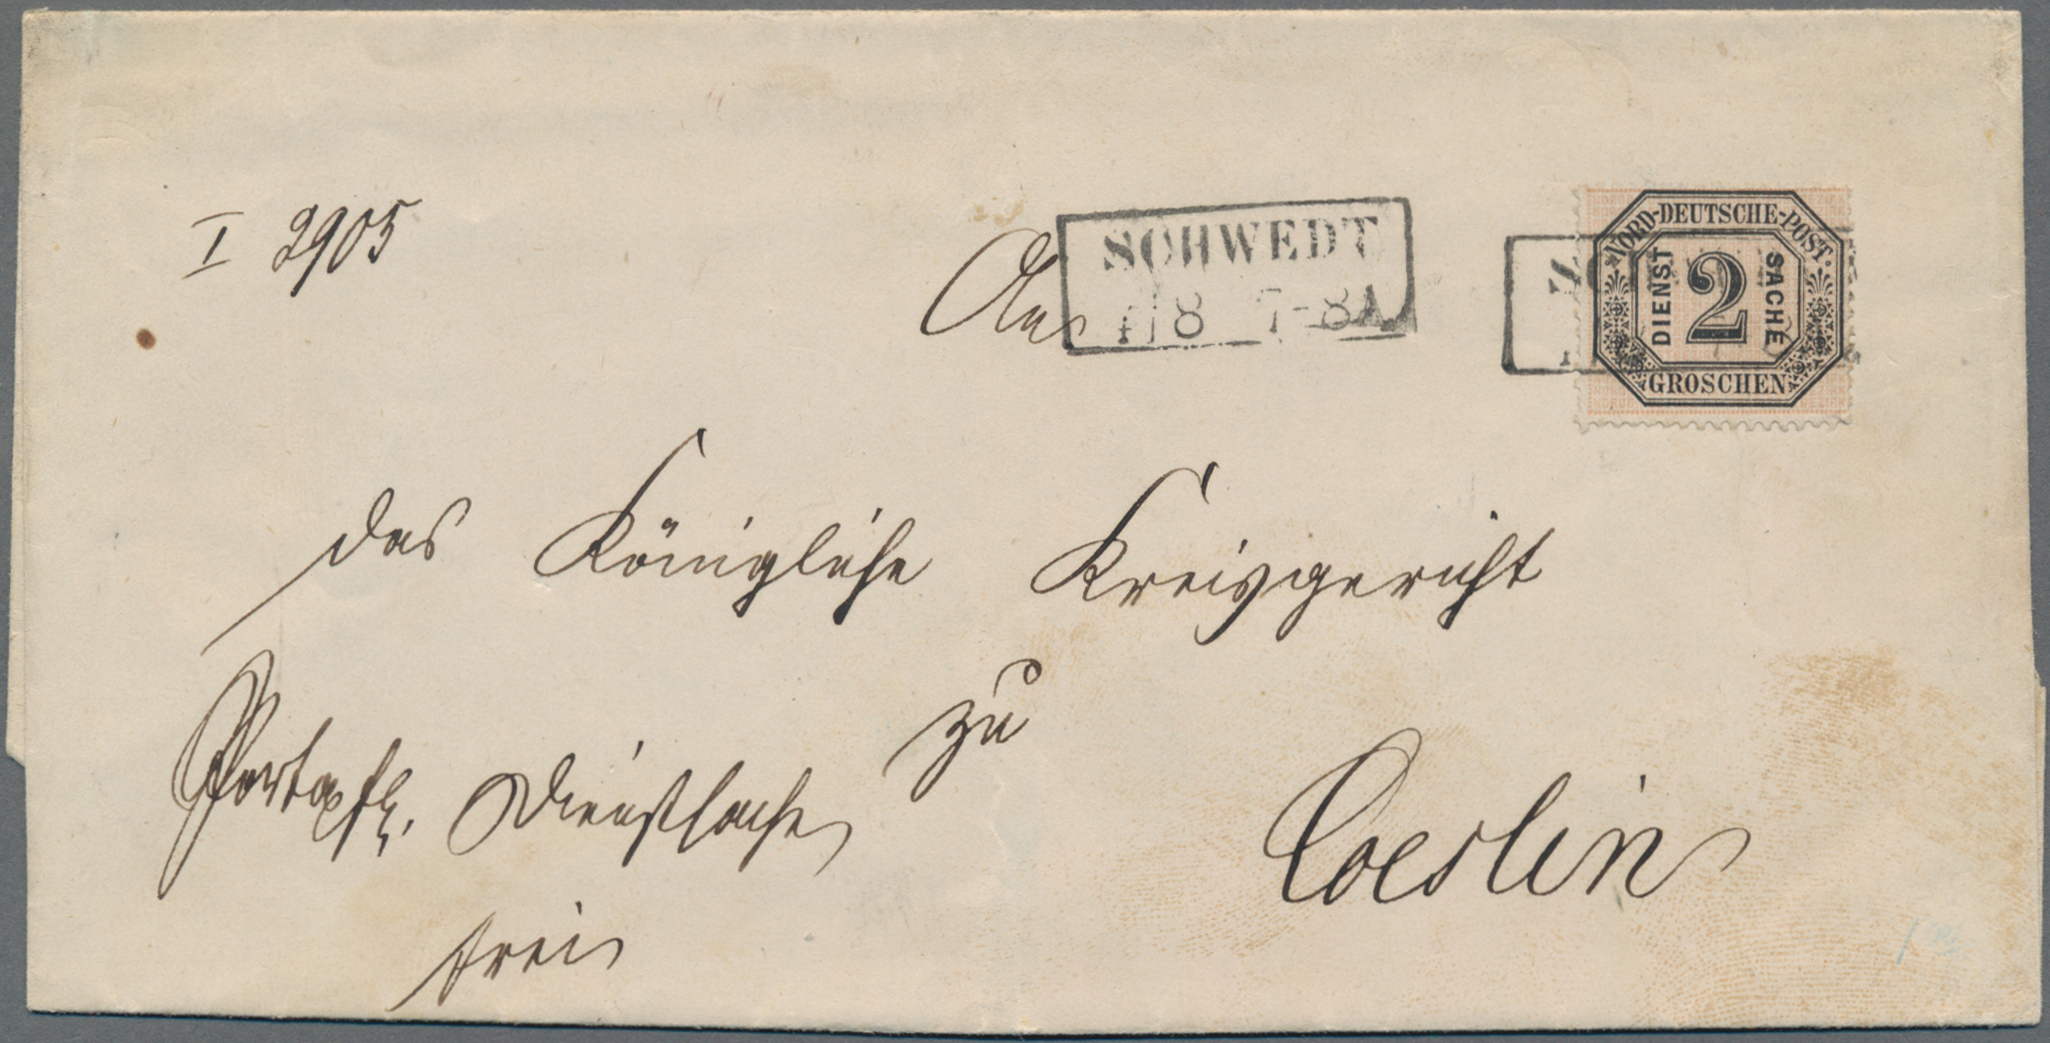 I 2905
An
SCHWEDT
8 7-8 A
NORD-DEUTSCHE-POST
DIENST 2 SACHE
GROSCHEN
das Königliche Kreisgericht
zu
Coeslin
Portopfl. Dienstsache
frei